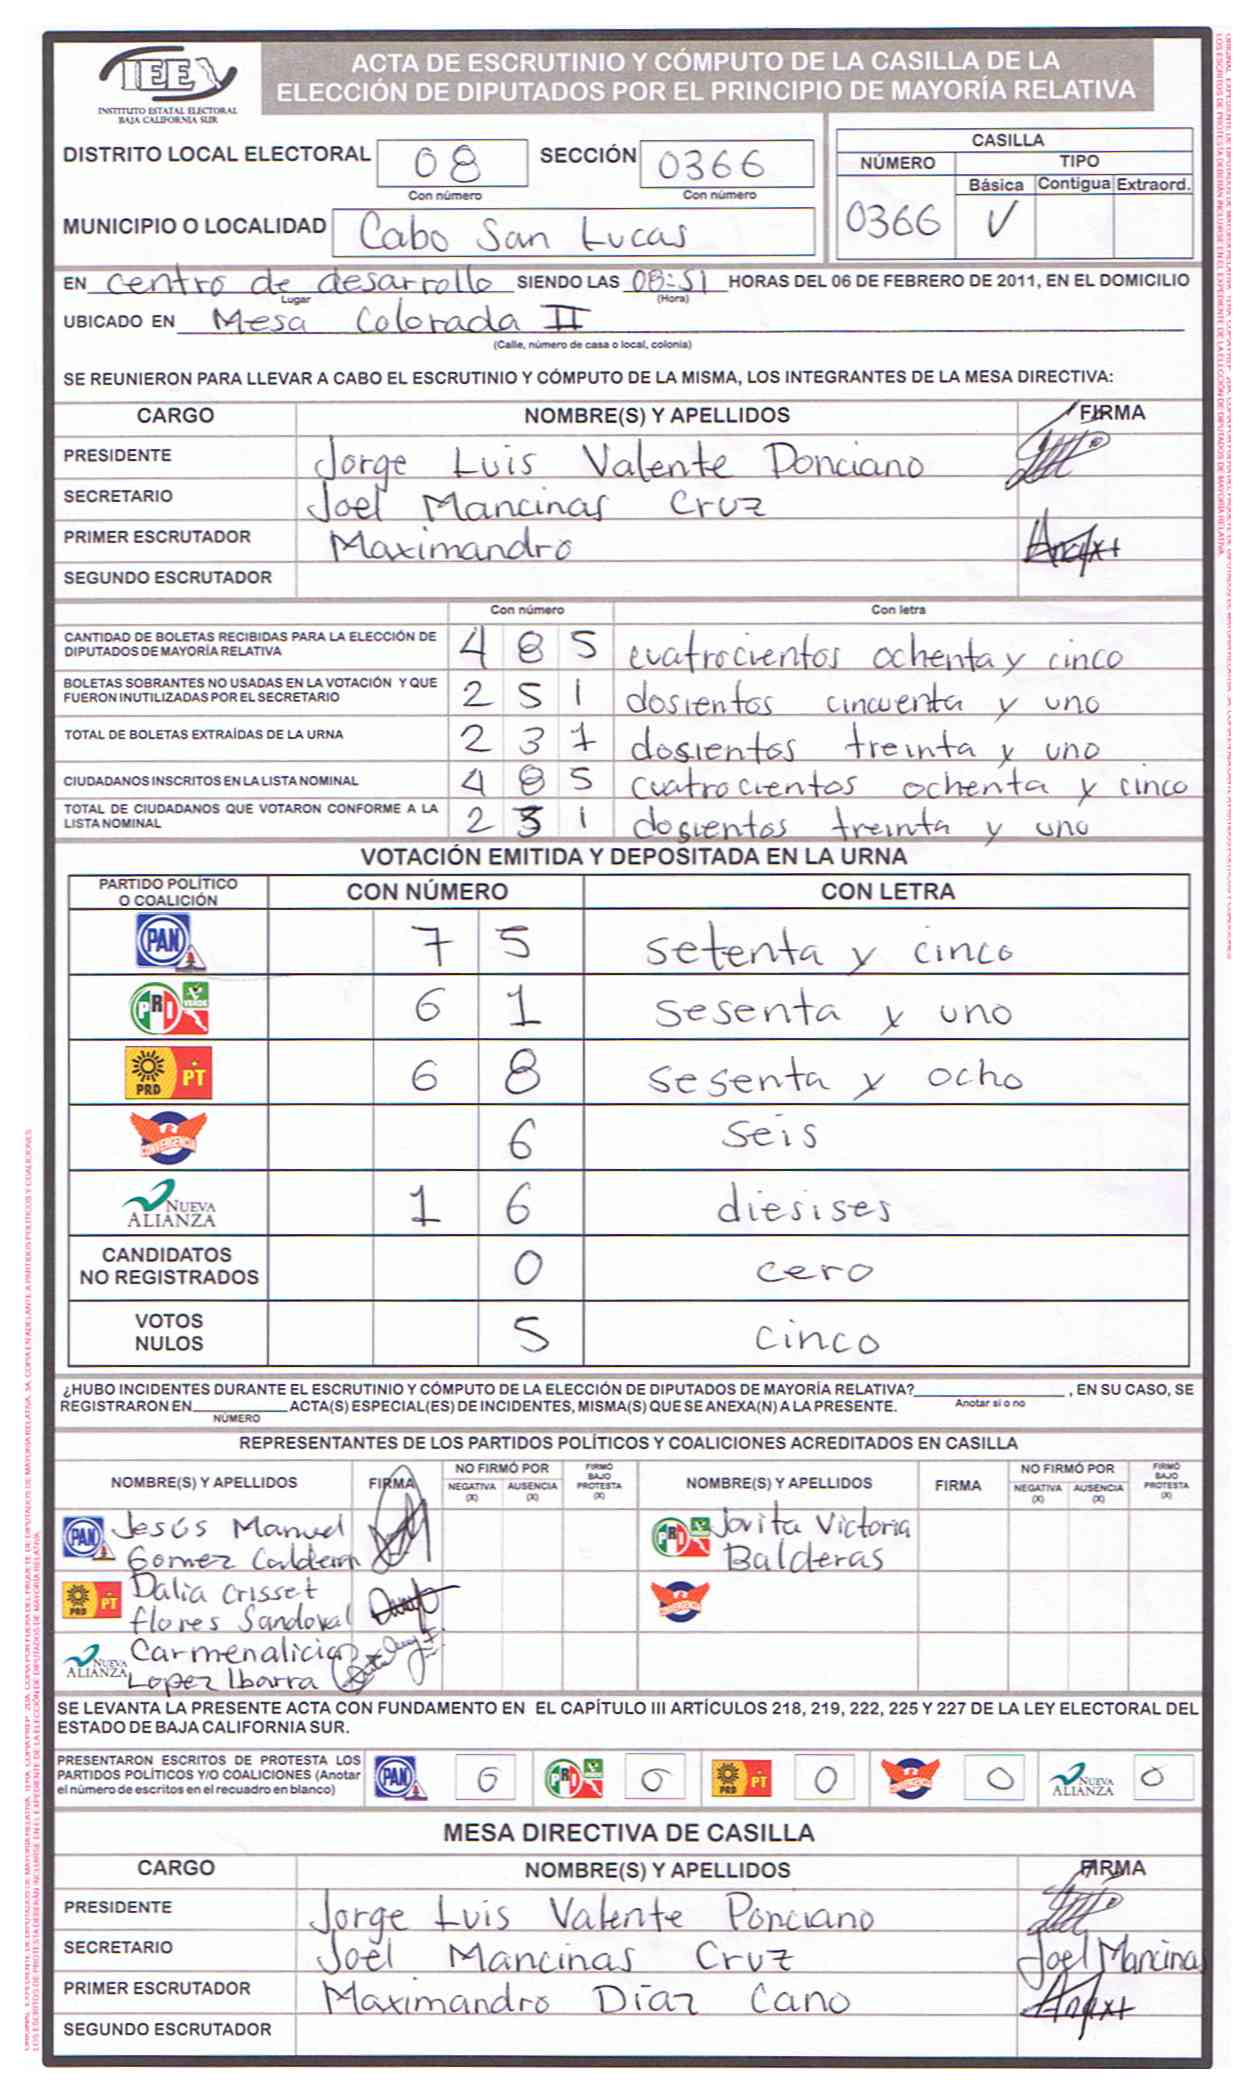 IEE
INSTITUTO ESTATAL ELECTORAL
BAJA CALIFORNIA SUR
ACTA DE ESCRUTINIO Y CÓMPUTO DE LA CASILLA DE LA
ELECCIÓN DE DIPUTADOS POR EL PRINCIPIO DE MAYORÍA RELATIVA
DISTRITO LOCAL ELECTORAL 08 SECCIÓN 0366
Con número Con número
MUNICIPIO O LOCALIDAD Cabo San Lucas
CASILLA
NÚMERO TIPO
Básica Contigua Extraord.
0366 ✓
EN centro de desarrollo SIENDO LAS 08:51 HORAS DEL 06 DE FEBRERO DE 2011, EN EL DOMICILIO
Lugar (Hora)
UBICADO EN Mesa Colorada II
(Calle, número de casa o local, colonia)
SE REUNIERON PARA LLEVAR A CABO EL ESCRUTINIO Y CÓMPUTO DE LA MISMA, LOS INTEGRANTES DE LA MESA DIRECTIVA:
CARGO NOMBRE(S) Y APELLIDOS FIRMA
PRESIDENTE Jorge Luis Valente Ponciano
SECRETARIO Joel Mancinas Cruz
PRIMER ESCRUTADOR Maximandro
SEGUNDO ESCRUTADOR
Con número Con letra
CANTIDAD DE BOLETAS RECIBIDAS PARA LA ELECCIÓN DE
DIPUTADOS DE MAYORÍA RELATIVA 4 8 5 cuatrocientos ochenta y cinco
BOLETAS SOBRANTES NO USADAS EN LA VOTACIÓN Y QUE
FUERON INUTILIZADAS POR EL SECRETARIO 2 5 1 dosientos cincuenta y uno
TOTAL DE BOLETAS EXTRAÍDAS DE LA URNA 2 3 1 dosientos treinta y uno
CIUDADANOS INSCRITOS EN LA LISTA NOMINAL 4 8 5 cuatrocientos ochenta y cinco
TOTAL DE CIUDADANOS QUE VOTARON CONFORME A LA
LISTA NOMINAL 2 3 1 dosientos treinta y uno
VOTACIÓN EMITIDA Y DEPOSITADA EN LA URNA
PARTIDO POLÍTICO
O COALICIÓN CON NÚMERO CON LETRA
PAN 7 5 setenta y cinco
PRI VERDE 6 1 sesenta y uno
PRD PT 6 8 sesenta y ocho
CONVERGENCIA 6 seis
NUEVA ALIANZA 1 6 diesises
CANDIDATOS
NO REGISTRADOS 0 cero
VOTOS
NULOS 5 cinco
¿HUBO INCIDENTES DURANTE EL ESCRUTINIO Y CÓMPUTO DE LA ELECCIÓN DE DIPUTADOS DE MAYORÍA RELATIVA? , EN SU CASO, SE
Anotar si o no
REGISTRARON EN ACTA(S) ESPECIAL(ES) DE INCIDENTES, MISMA(S) QUE SE ANEXA(N) A LA PRESENTE.
NÚMERO
REPRESENTANTES DE LOS PARTIDOS POLÍTICOS Y COALICIONES ACREDITADOS EN CASILLA
NOMBRE(S) Y APELLIDOS FIRMA NO FIRMÓ POR NEGATIVA (X) AUSENCIA (X) FIRMÓ BAJO PROTESTA (X) NOMBRE(S) Y APELLIDOS FIRMA NO FIRMÓ POR NEGATIVA (X) AUSENCIA (X) FIRMÓ BAJO PROTESTA (X)
PAN Jesús Manuel PRI VERDE Jovita Victoria
Gomez Calderon Balderas
PRD PT Dalia Crisset CONVERGENCIA
flores Sandoval
NUEVA ALIANZA Carmenalicia
Lopez Ibarra
SE LEVANTA LA PRESENTE ACTA CON FUNDAMENTO EN EL CAPÍTULO III ARTÍCULOS 218, 219, 222, 225 Y 227 DE LA LEY ELECTORAL DEL
ESTADO DE BAJA CALIFORNIA SUR.
PRESENTARON ESCRITOS DE PROTESTA LOS
PARTIDOS POLÍTICOS Y/O COALICIONES (Anotar
el número de escritos en el recuadro en blanco)
PAN 0 PRI VERDE 0 PRD PT 0 CONVERGENCIA 0 NUEVA ALIANZA 0
MESA DIRECTIVA DE CASILLA
CARGO NOMBRE(S) Y APELLIDOS FIRMA
PRESIDENTE Jorge Luis Valente Ponciano
SECRETARIO Joel Mancinas Cruz Joel Mancinas
PRIMER ESCRUTADOR Maximandro Díaz Cano
SEGUNDO ESCRUTADOR